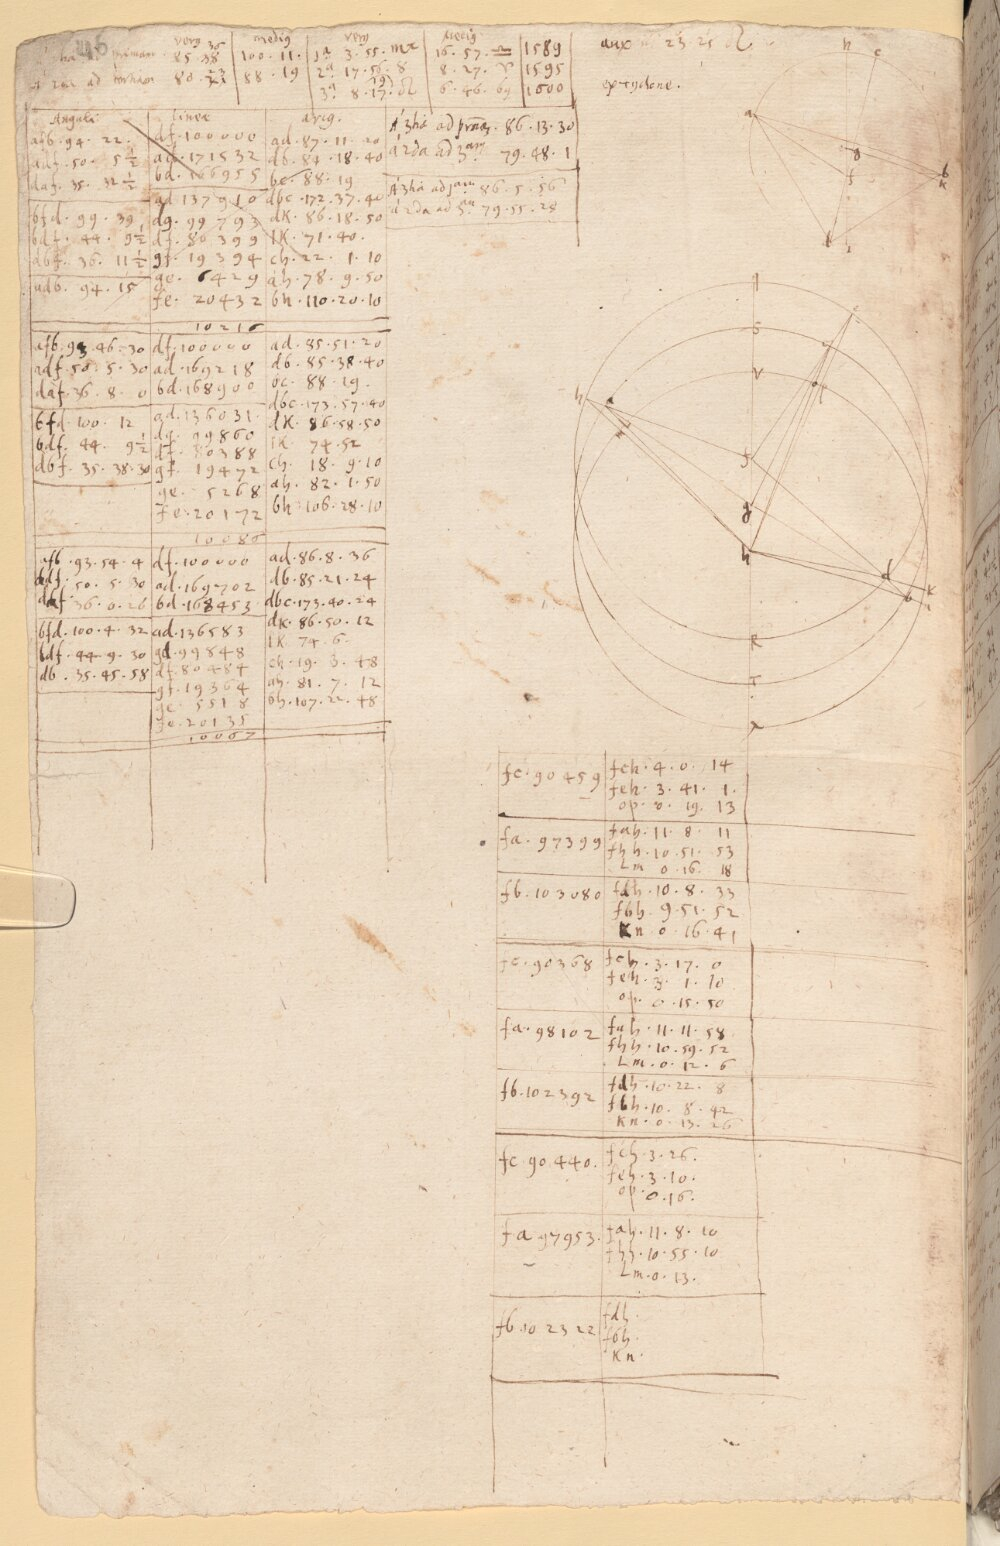 very medig very medig
primam 85 38 100 11 1ª 3.55 m 16.57 ♎ 1589
ad tertiam 80 88 19 2ª 17.56 8 8.27 ♈ 1595
3ª 8.17 ♌ 6.46 1600
aux 23 25 ♌
ex tychone.
Anguli lineæ arig.
afb. 94. 22.
adf. 50. 5 ½
daf. 35. 32 ½
bfd. 99. 39
bdf. 44. 9 ½
dbf. 36. 11 ½
adb. 94. 15
df. 100000
ad. 171532
bd. 166955
ad 137910
dg. 99793
df. 80399
gf. 19394
ge. 6429
fe. 20432
10216
ad. 87. 11. 20
db. 84. 18. 40
bc. 88. 19
dbc. 172. 37. 40
dK. 86. 18. 50
lK. 71. 40.
ch. 22. 1. 10
ah. 78. 9. 50
bh. 110. 20. 10
A 3ha ad 86. 13. 30
a 2da ad 3am 79. 48. 1
A 3ha ad 1am 86. 5. 56
a 2da ad 79. 55. 28
afb. 93. 46. 30
adf. 50. 5. 30
daf. 36. 8. 0
bfd. 100. 12
bdf. 44. 9 ½
dbf. 35. 38. 30
df. 100000
ad. 169218
bd. 168900
ad. 136031.
dg. 99860
df. 80388
gf. 19472
ge. 5268
fe. 20172
10086
ad. 85. 51. 20
db. 85. 38. 40
bc. 88. 19.
dbc. 173. 57. 40
dK. 86. 58. 50
lK. 74. 52
ch. 18. 9. 10
ah. 82. 1. 50
bh. 106. 28. 10
afb. 93. 54. 4
adf. 50. 5. 30
daf 36. 0. 26
bfd. 100. 4. 32
bdf. 44. 9. 30
db. 35. 45. 58
df. 100000
ad. 169702
bd. 168453
ad. 136583
gd. 99848
df. 80484
gf. 19364
ge. 5518
fe. 20135
10067
ad. 86. 8. 36
db. 85. 21. 24
dbc. 173. 40. 24
dK. 86. 50. 12
lK. 74. 6.
ch. 19. 3. 48
ah. 81. 7. 12
bh. 107. 22. 48
fc. 90459
fch. 4. 0. 14
feh. 3. 41. 1.
op. 0. 19. 13
fa. 97399
fah. 11. 8. 11
fhh. 10. 51. 53
Lm 0. 16. 18
fb. 103080
fdh. 10. 8. 33
fbh. 9. 51. 52
Kn. 0. 16. 41
fc. 90368
fch. 3. 17. 0
feh. 3. 1. 10
op. 0. 15. 50
fa. 98102
fah. 11. 11. 58
fhh. 10. 59. 52
Lm. 0. 12. 6
fb. 102392
fdh. 10. 22. 8
fbh. 10. 8. 42
Kn. 0. 13. 26
fc. 90440.
fch. 3. 26.
feh. 3. 10.
op. 0. 16.
fa 97953.
fah. 11. 8. 10
fhh. 10. 55. 10
Lm. 0. 13.
fb. 102322
fdh.
fbh.
Kn.